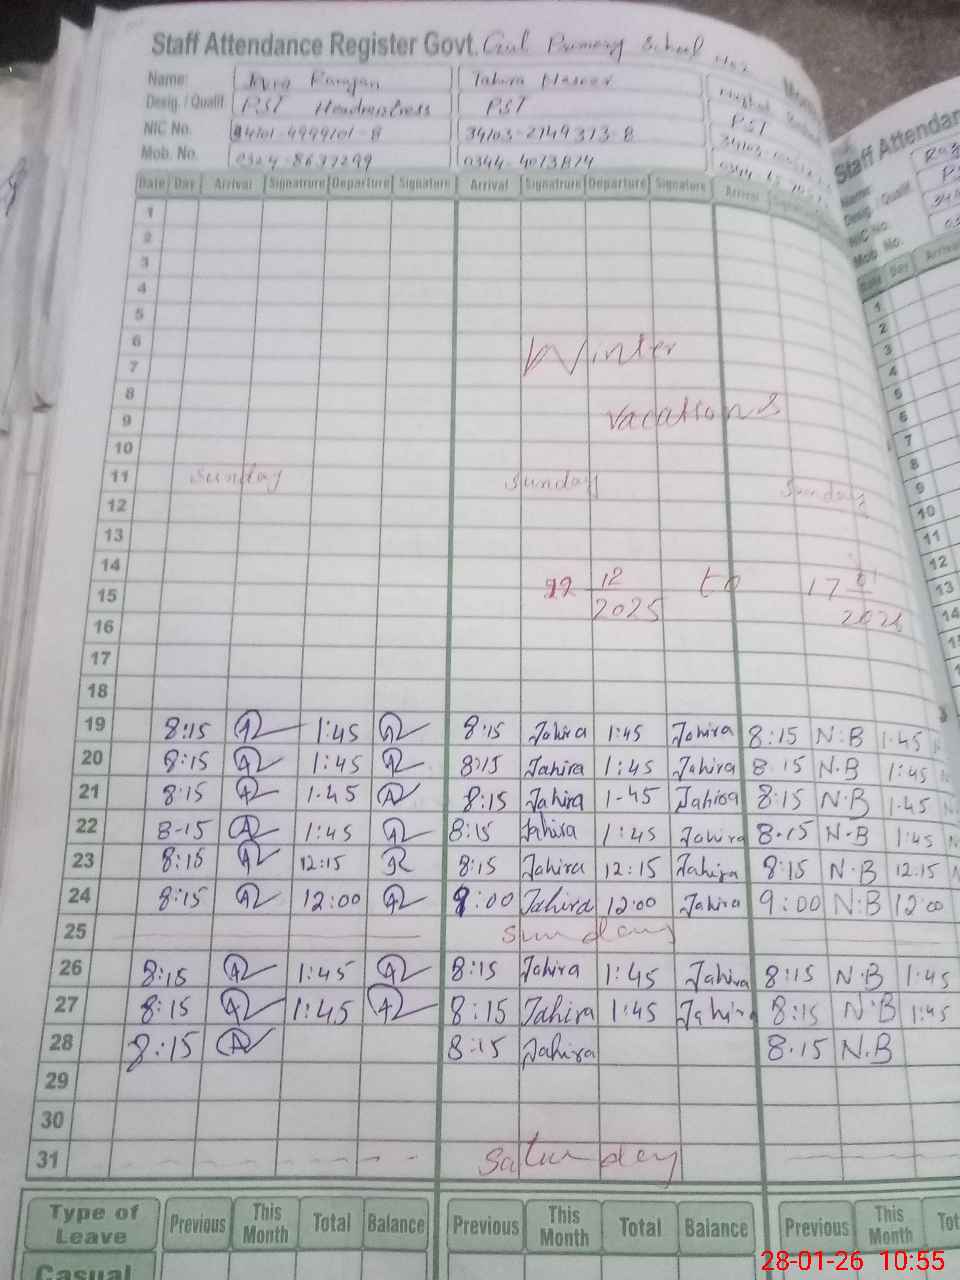 Staff Attendance Register Govt. Girl Primary School
Name: Tahira
Desig. / Qualif. PST Headmistress PST PST
NIC No. 34101-4999101-8 34103-2149313-8
Mob. No. 0324-8637299
Date Day Arrival Signatrure Departure Signature Arrival Signatrure Departure Signature Arrival
1
2
3
4
5
6 Winter
7
8
9 vacations
10
11 Sunday Sunday Sunday
12
13
14
15 22 12/2025 to 17 01/2026
16
17
18
19 8:15 1:45 8:15 Tahira 1:45 Tahira 8:15 N:B 1.45
20 8:15 1:45 8:15 Tahira 1:45 Tahira 8.15 N.B 1:45
21 8:15 1.45 8:15 Tahira 1-45 Tahira 8:15 N.B 1.45
22 8-15 1:45 8:15 Tahira 1:45 Tahira 8.15 N.B 1:45
23 8:15 12:15 8:15 Tahira 12:15 Tahira 8:15 N.B 12.15
24 8:15 12:00 9:00 Tahira 12:00 Tahira 9:00 N.B 12:00
25 Sunday
26 8:15 1:45 8:15 Tahira 1:45 Tahira 8:15 N.B 1:45
27 8:15 1:45 8:15 Tahira 1:45 Tahira 8:15 N.B 1:45
28 8:15 8:15 Tahira 8.15 N.B
29
30
31 Saturday
Type of Leave Previous This Month Total Balance Previous This Month Total Balance Previous This Month
Casual
Staff Attendan
Name:
Desig. / Qualif.
NIC No.
Mob. No.
Date Day Arrival
1
2
3
4
5
6
7
8
9
10
11
12
13
14
28-01-26 10:55